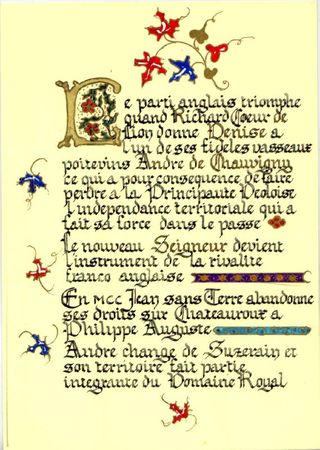 Le parti anglais triomphe
quand Richard Coeur de
Lion donne Denise a
l'un de ses fideles vasseaux
poitevins Andre de Chauvigny
ce qui a pour consequence de faire
perdre a la Principaute Deoloise
l'independance territoriale qui a
fait sa force dans le passe
Le nouveau Seigneur devient
l'instrument de la rivalite
franco anglaise
En MCC Jean sans Terre abandonne
ses droits sur Chateauroux a
Philippe Auguste
Andre change de Suzerain et
son territoire fait partie
integrante du Domaine Royal